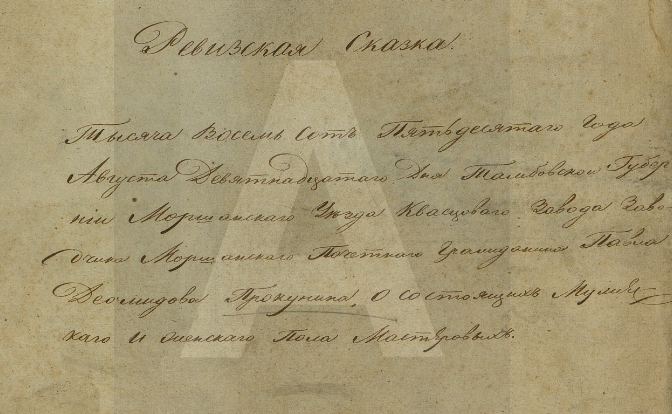 Ревизская Сказка.
Тысяча Восемь Сотъ Пятьдесятаго Года
Августа Девятнадцатаго Дня Тамбовской Губер
нiи Моршанскаго Уѣзда Квасцоваго Завода Заво
дчика Моршанскаго Почетнаго Гражданина Павла
Деомидова Прокунина, О состоящихъ Мужес
каго и женскаго Пола Мастеровыхъ.
А